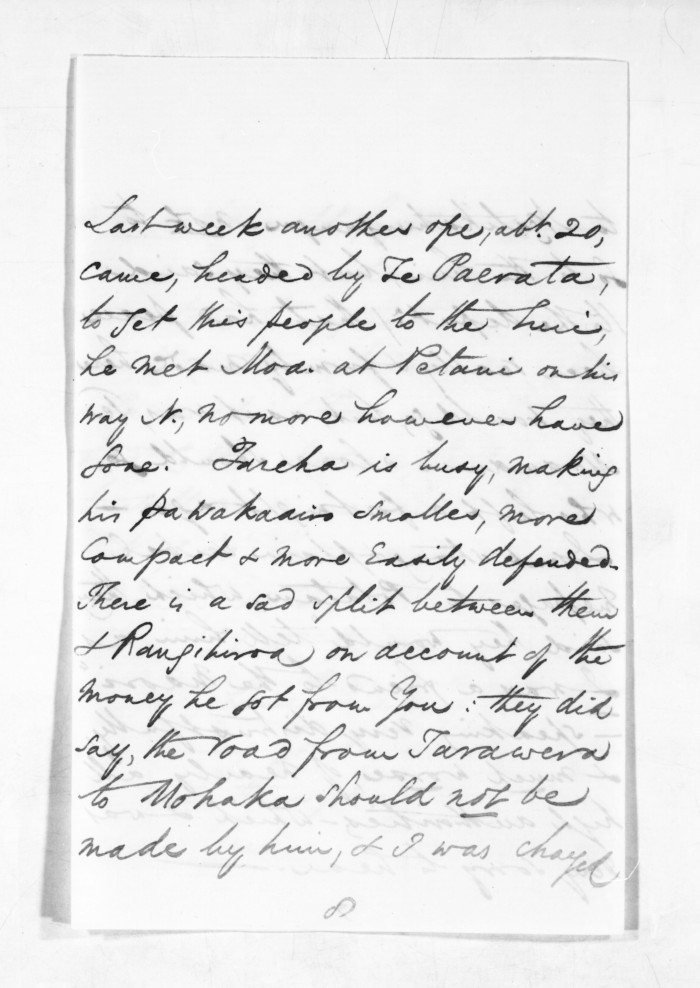 Last week another ope, abt. 20,
came, headed by Te Paerata,
to get this people to the hui,
he met Mod. at Petani on his
way N., no more however have
gone. Tareha is busy, making
his pawakaairo smaller, more
compact & more easily defended.
There is a sad split between them
& Rangihiroa on account of the
money he got from You: they did
say, the road from Tarawera
to Mohaka should not be
made by him, & I was
8